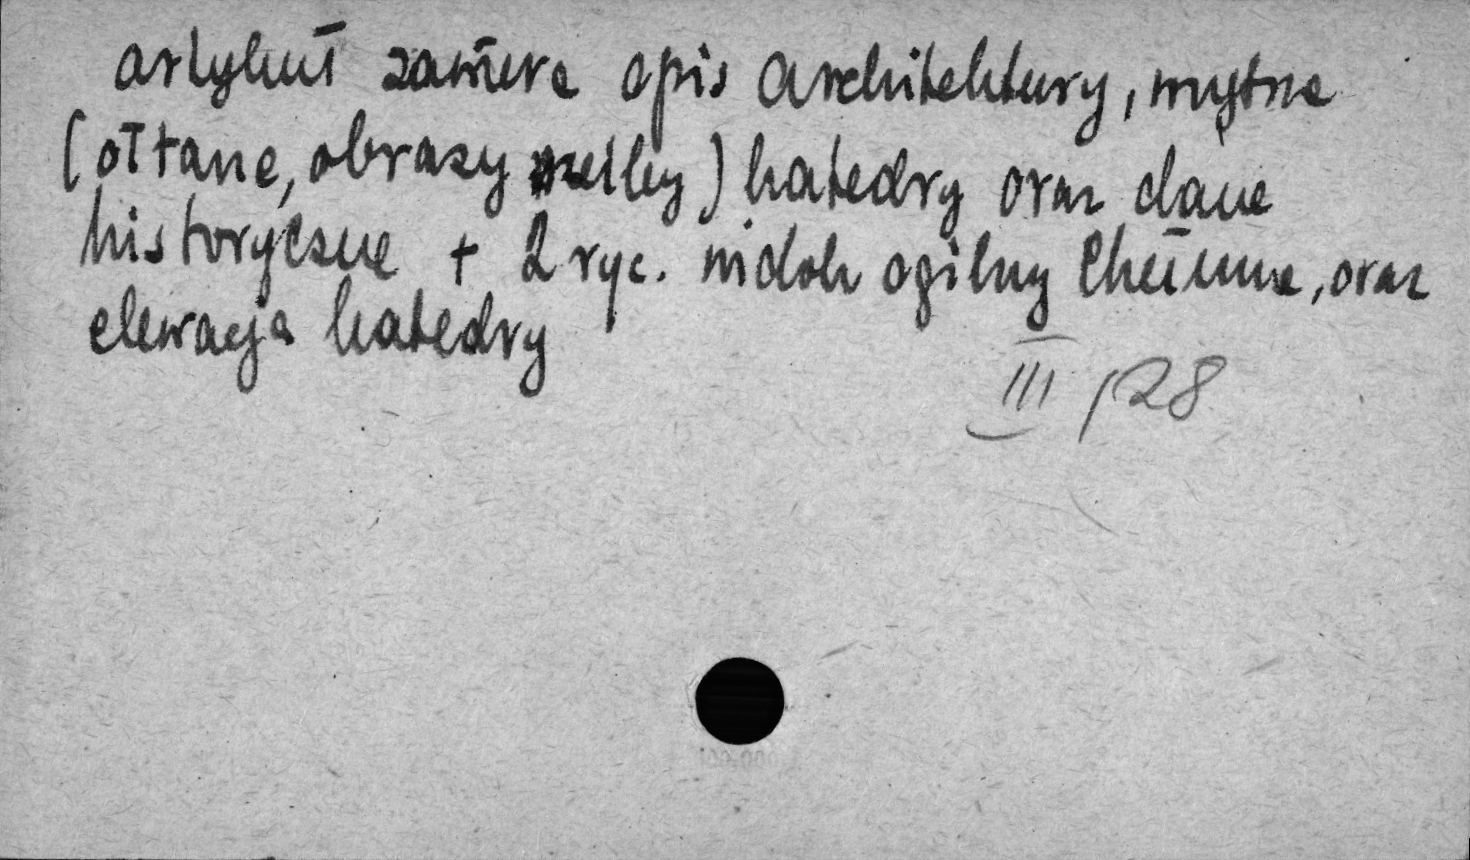 artykuł zawiera opis architektury, wnętrza
(ołtarze, obrazy rzeźby) katedry oraz dane
historyczne + 2 ryc. widok ogólny Chełmna, oraz
elewacja katedry
III /28